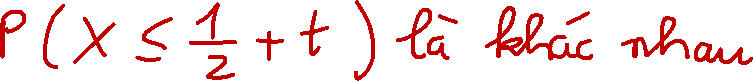 P(X ≤ 1/2 + t) là khác nhau